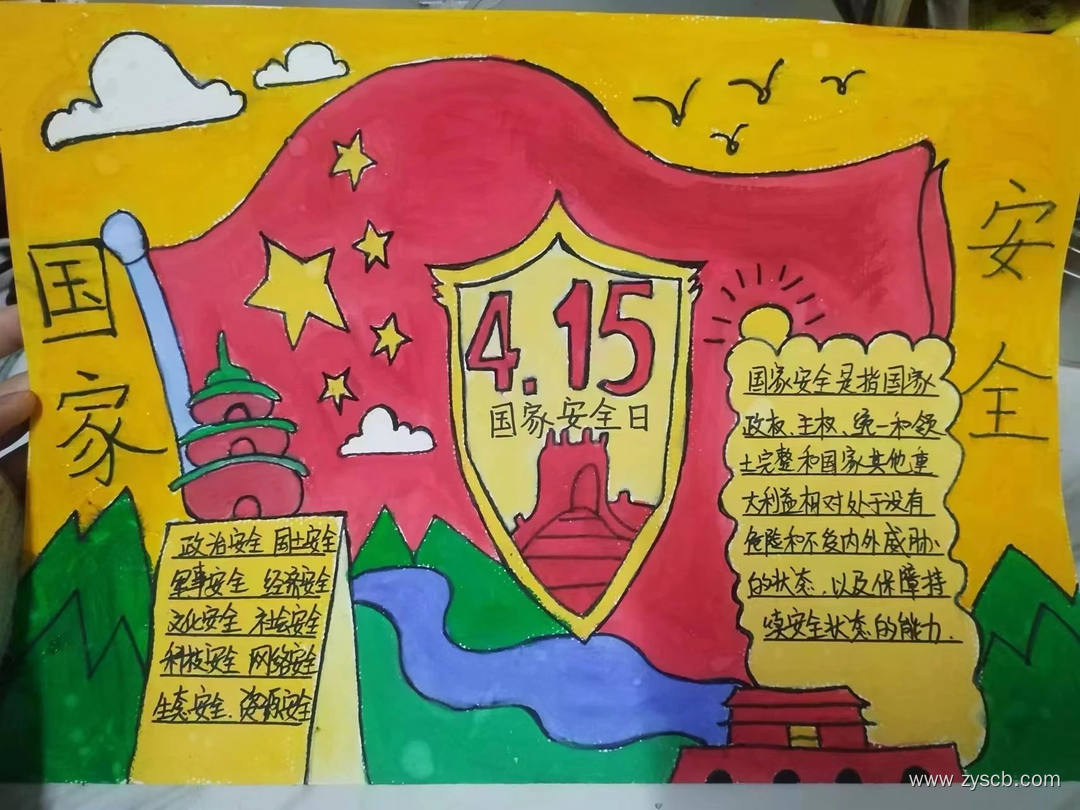 国家
安全
4.15
国家安全日
政治安全 国土安全
军事安全 经济安全
文化安全 社会安全
科技安全 网络安全
生态安全、资源安全
国家安全是指国家
政权、主权、统一和领
土完整和国家其他重
大利益相对处于没有
危险和不受内外威胁
的状态,以及保障持
续安全状态的能力.
www.zyscb.com